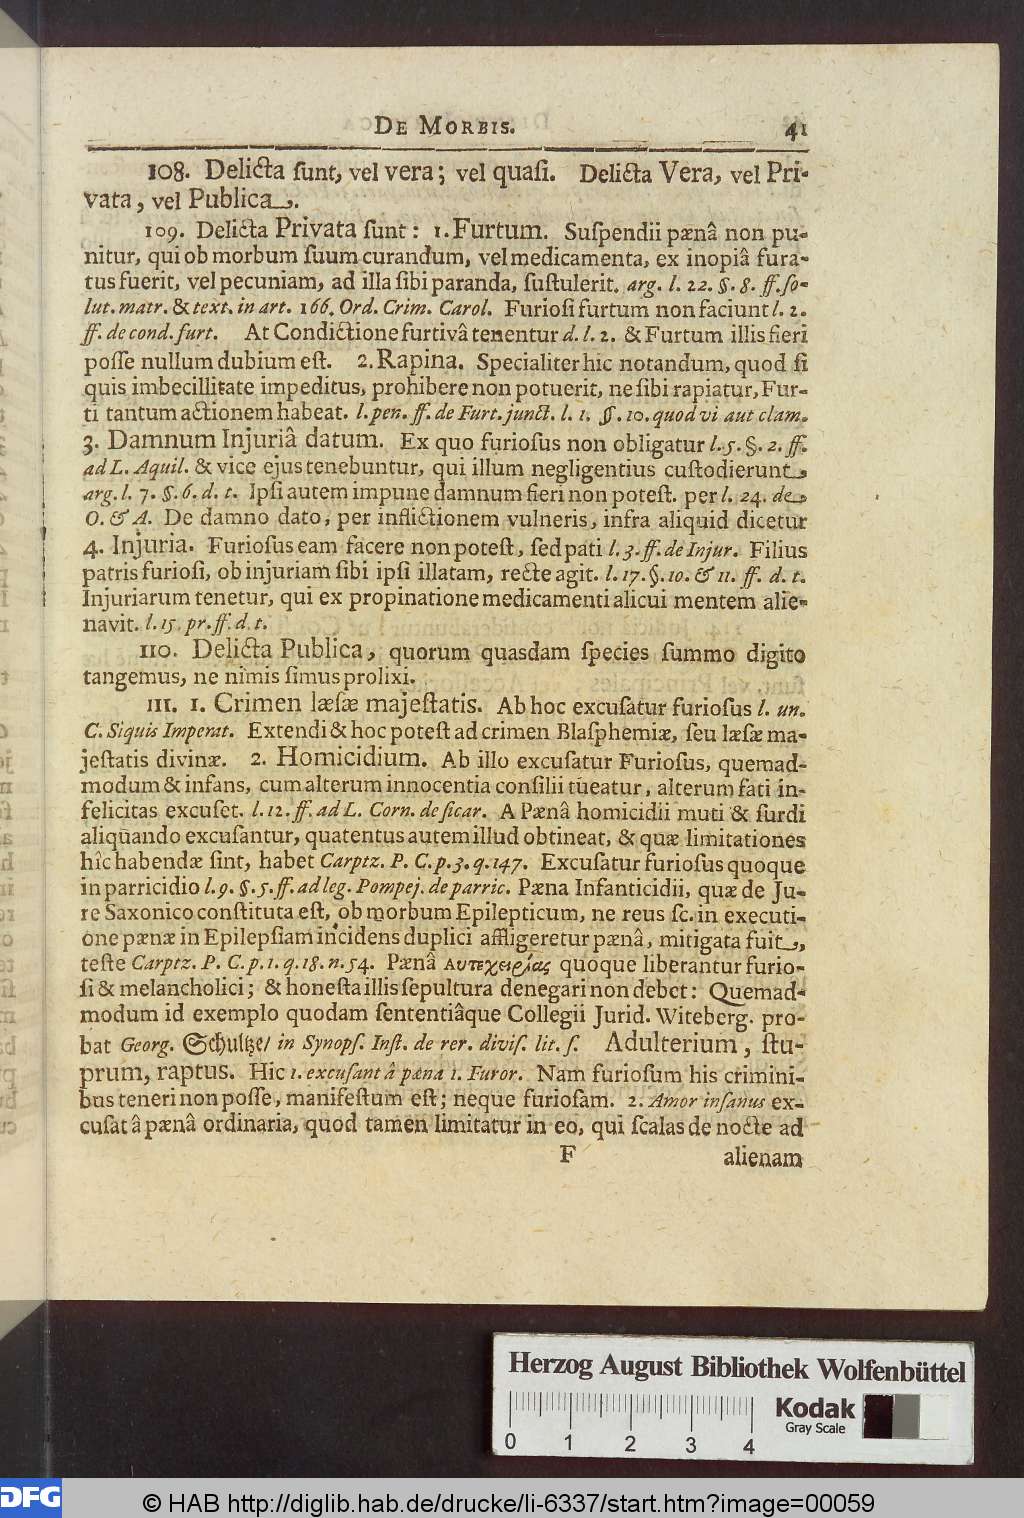 De Morbis. 41
108. Delicta ſunt, vel vera; vel quaſi. Delicta Vera, vel Pri-
vata, vel Publica.
109. Delicta Privata ſunt: 1. Furtum. Suſpendii pænâ non pu-
nitur, qui ob morbum ſuum curandum, vel medicamenta, ex inopiâ fura-
tus fuerit, vel pecuniam, ad illa ſibi paranda, ſuſtulerit. arg. l. 22. §. 8. ff. ſo-
lut. matr. & text. in art. 166. Ord. Crim. Carol. Furioſi furtum non faciunt l. 2.
ff. de cond. furt. At Condictione furtivâ tenentur d. l. 2. & Furtum illis fieri
poſſe nullum dubium eſt. 2. Rapina. Specialiter hic notandum, quod ſi
quis imbecillitate impeditus, prohibere non potuerit, ne ſibi rapiatur, Fur-
ti tantum actionem habeat. l. pen. ff. de Furt. junct. l. 1. §. 10. quod vi aut clam.
3. Damnum Injuriâ datum. Ex quo furioſus non obligatur l. 5. §. 2. ff.
ad L. Aquil. & vice ejus tenebuntur, qui illum negligentius cuſtodierunt,
arg. l. 7. §. 6. d. t. Ipſi autem impune damnum fieri non poteſt. per l. 24. de
O. & A. De damno dato, per inflictionem vulneris, infra aliquid dicetur
4. Injuria. Furioſus eam facere non poteſt, ſed pati l. 3. ff. de Injur. Filius
patris furioſi, ob injuriam ſibi ipſi illatam, recte agit. l. 17. §. 10. & 11. ff. d. t.
Injuriarum tenetur, qui ex propinatione medicamenti alicui mentem alie-
navit. l. 15. pr. ff. d. t.
110. Delicta Publica, quorum quasdam ſpecies ſummo digito
tangemus, ne nimis ſimus prolixi.
111. 1. Crimen læſæ majeſtatis. Ab hoc excuſatur furioſus l. un.
C. Siquis Imperat. Extendi & hoc poteſt ad crimen Blaſphemiæ, ſeu læſæ ma-
jeſtatis divinæ. 2. Homicidium. Ab illo excuſatur Furioſus, quemad-
modum & infans, cum alterum innocentia conſilii tueatur, alterum fati in-
felicitas excuſet. l. 12. ff. ad L. Corn. de ſicar. A Pænâ homicidii muti & ſurdi
aliquando excuſantur, quatentus autem illud obtineat, & quæ limitationes
hîc habendæ ſint, habet Carptz. P. C. p. 3. q. 147. Excuſatur furioſus quoque
in parricidio l. 9. §. 5. ff. ad leg. Pompej. de parric. Pæna Infanticidii, quæ de Ju-
re Saxonico conſtituta eſt, ob morbum Epilepticum, ne reus ſc. in executi-
one pænæ in Epilepſiam incidens duplici affligeretur pænâ, mitigata fuit,
teſte Carptz. P. C. p. 1. q. 18. n. 54. Pænâ αυτεχειρίας quoque liberantur furio-
ſi & melancholici; & honeſta illis ſepultura denegari non debet: Quemad-
modum id exemplo quodam ſententiâque Collegii Jurid. Witeberg. pro-
bat Georg. Schultze/ in Synopſ. Inſt. de rer. diviſ. lit. ſ. Adulterium, ſtu-
prum, raptus. Hic 1. excuſant â pæna 1. Furor. Nam furioſum his crimini-
bus teneri non poſſe, manifeſtum eſt; neque furioſam. 2. Amor inſanus ex-
cuſat â pænâ ordinaria, quod tamen limitatur in eo, qui ſcalas de nocte ad
F alienam
Herzog August Bibliothek Wolfenbüttel
Kodak
Gray Scale
0 1 2 3 4
DFG © HAB http://diglib.hab.de/drucke/li-6337/start.htm?image=00059